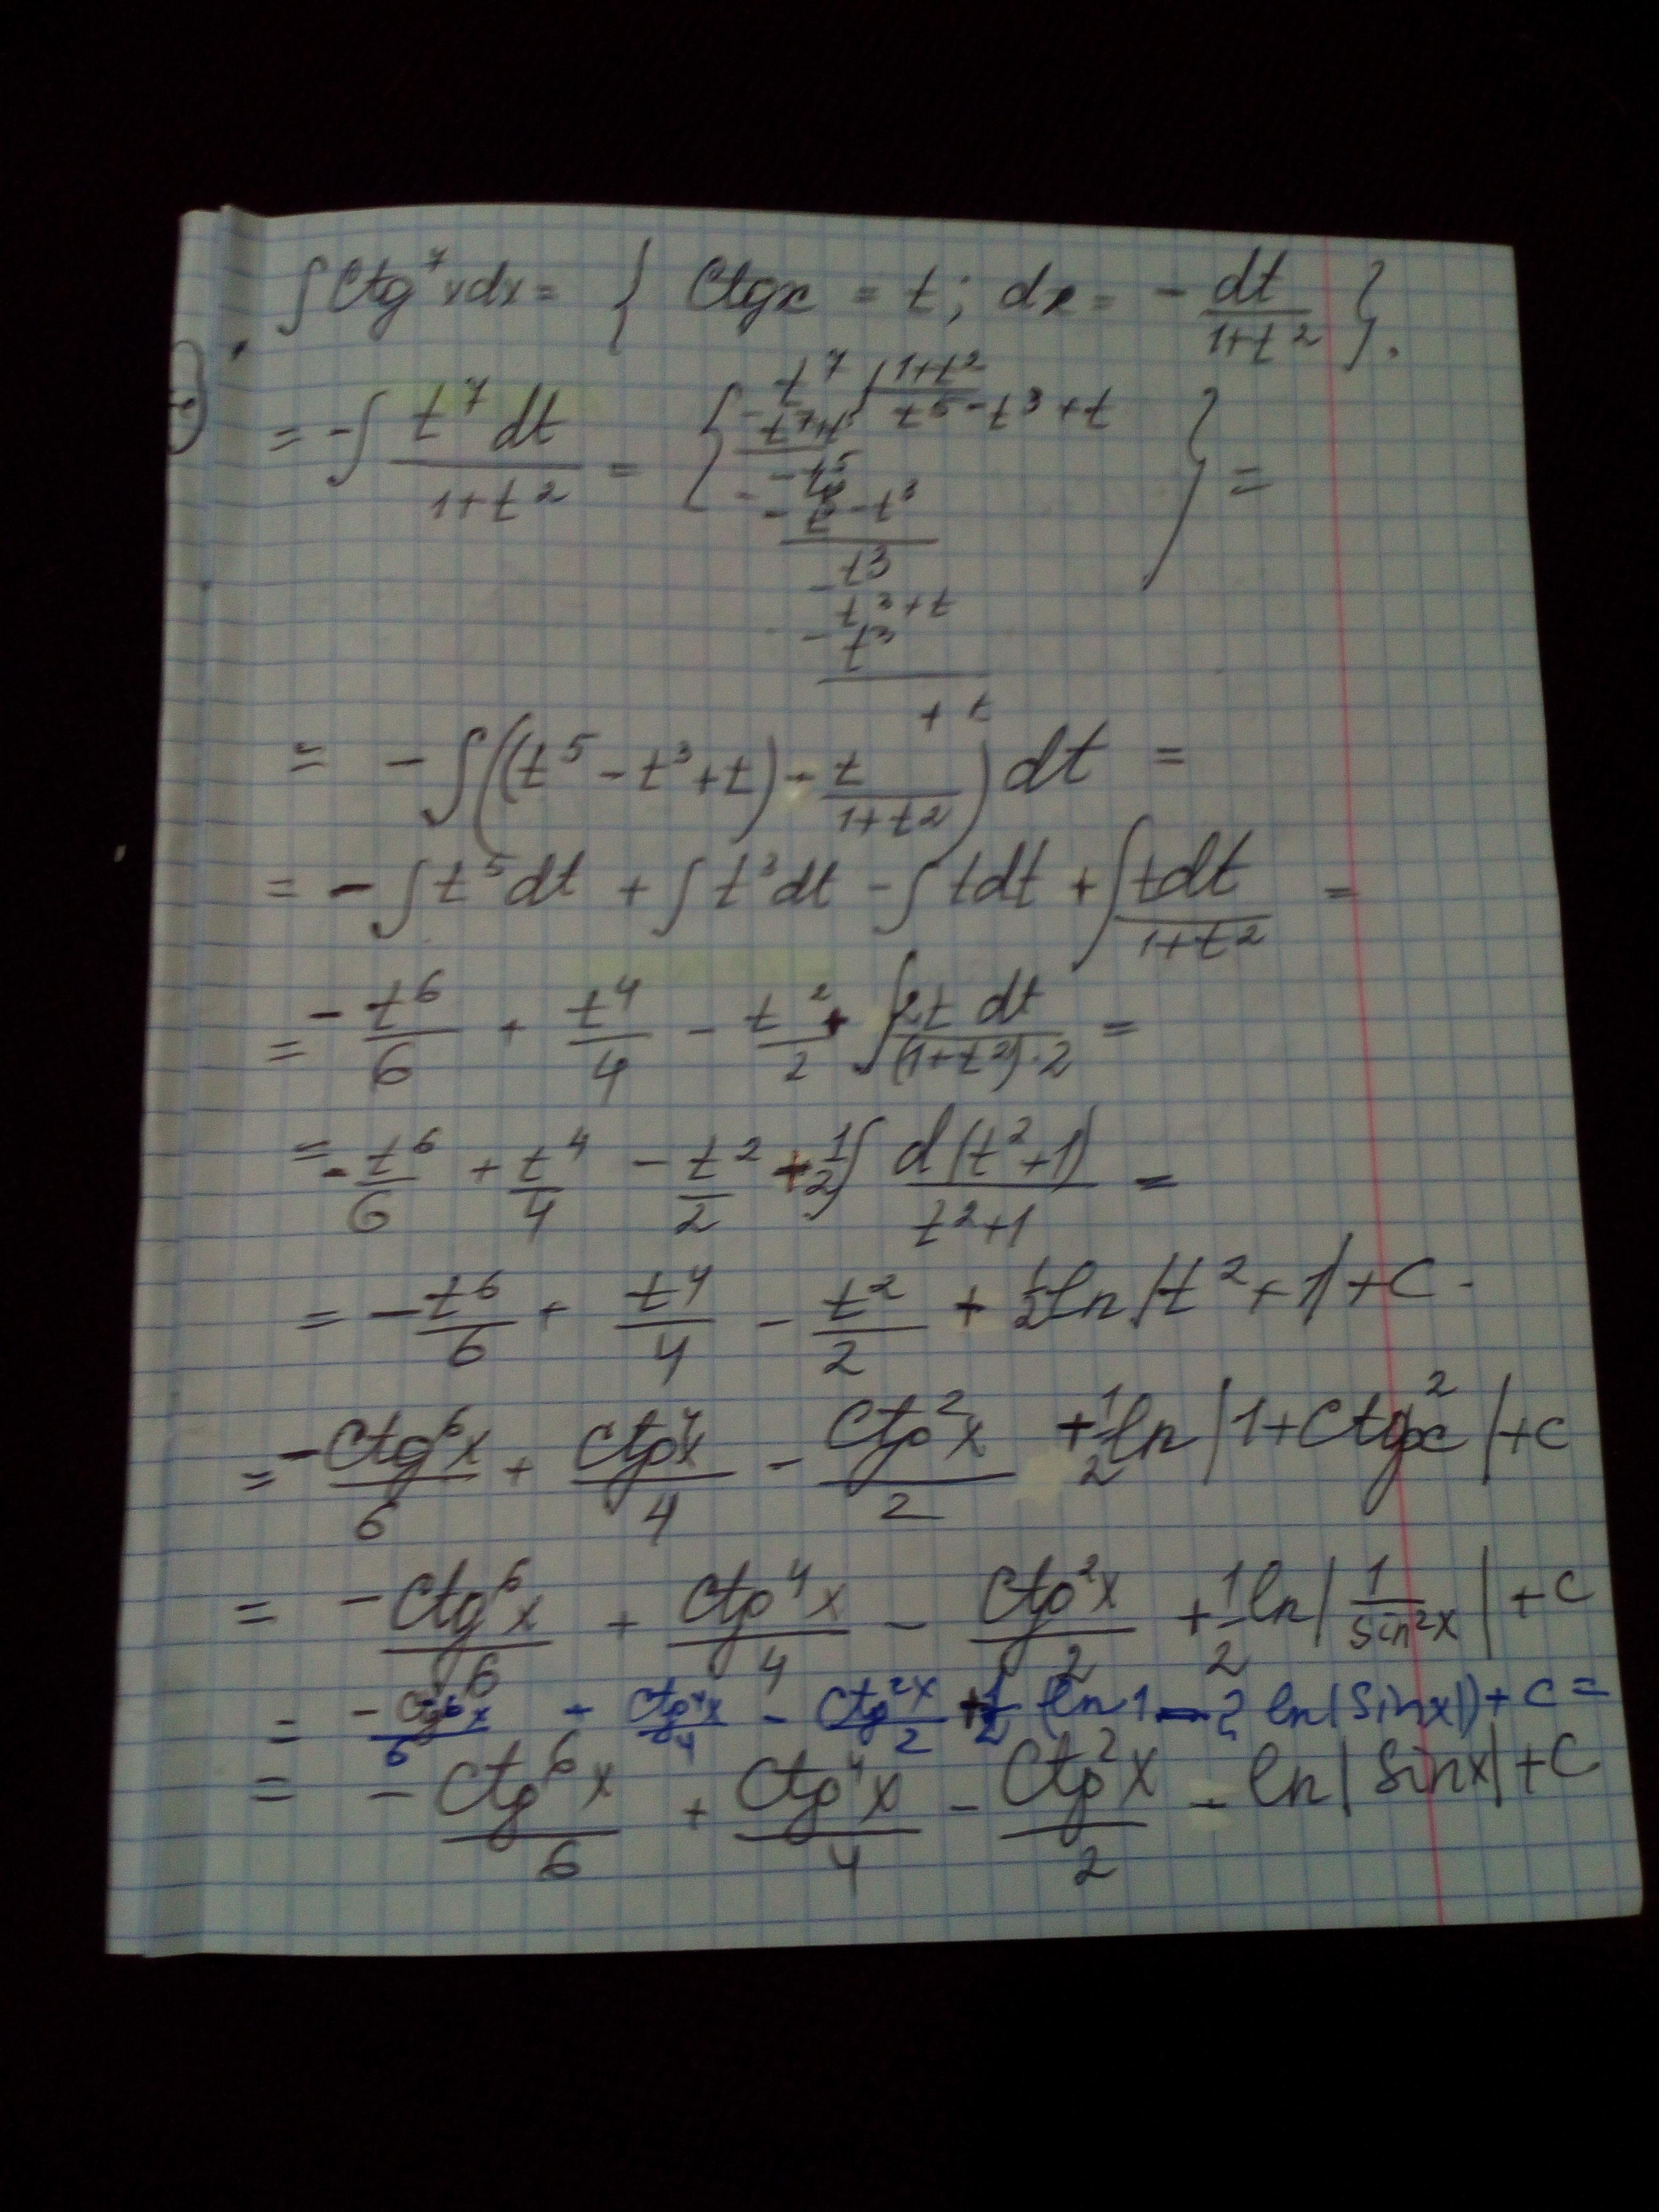 ∫ Ctg⁷xdx = { Ctgx = t; dx = - dt/(1+t²) }.
= -∫ t⁷dt/(1+t²) = { t⁷ | 1+t²
- t⁷+t⁵ | t⁵-t³+t } =
-t⁵
- -t⁵-t³
t³
- t³+t
- t³
+ t
= -∫((t⁵-t³+t) - t/(1+t²))dt =
= -∫t⁵dt + ∫t³dt - ∫tdt + ∫tdt/(1+t²) =
= -t⁶/6 + t⁴/4 - t²/2 + ∫2t dt/((1+t²)·2) =
= -t⁶/6 + t⁴/4 - t²/2 + 1/2∫ d(t²+1)/(t²+1) =
= -t⁶/6 + t⁴/4 - t²/2 + 1/2 ln|t²+1|+C -
= -Ctg⁶x/6 + Ctg⁴x/4 - Ctg²x/2 + 1/2 ln|1+Ctg²x|+C
= -Ctg⁶x/6 + Ctg⁴x/4 - Ctg²x/2 + 1/2 ln|1/sin²x|+C
= -Ctg⁶x/6 + Ctg⁴x/4 - Ctg²x/2 + 1/2 (ln1 - 2 ln|Sinx|)+C =
= -Ctg⁶x/6 + Ctg⁴x/4 - Ctg²x/2 - ln|Sinx|+C